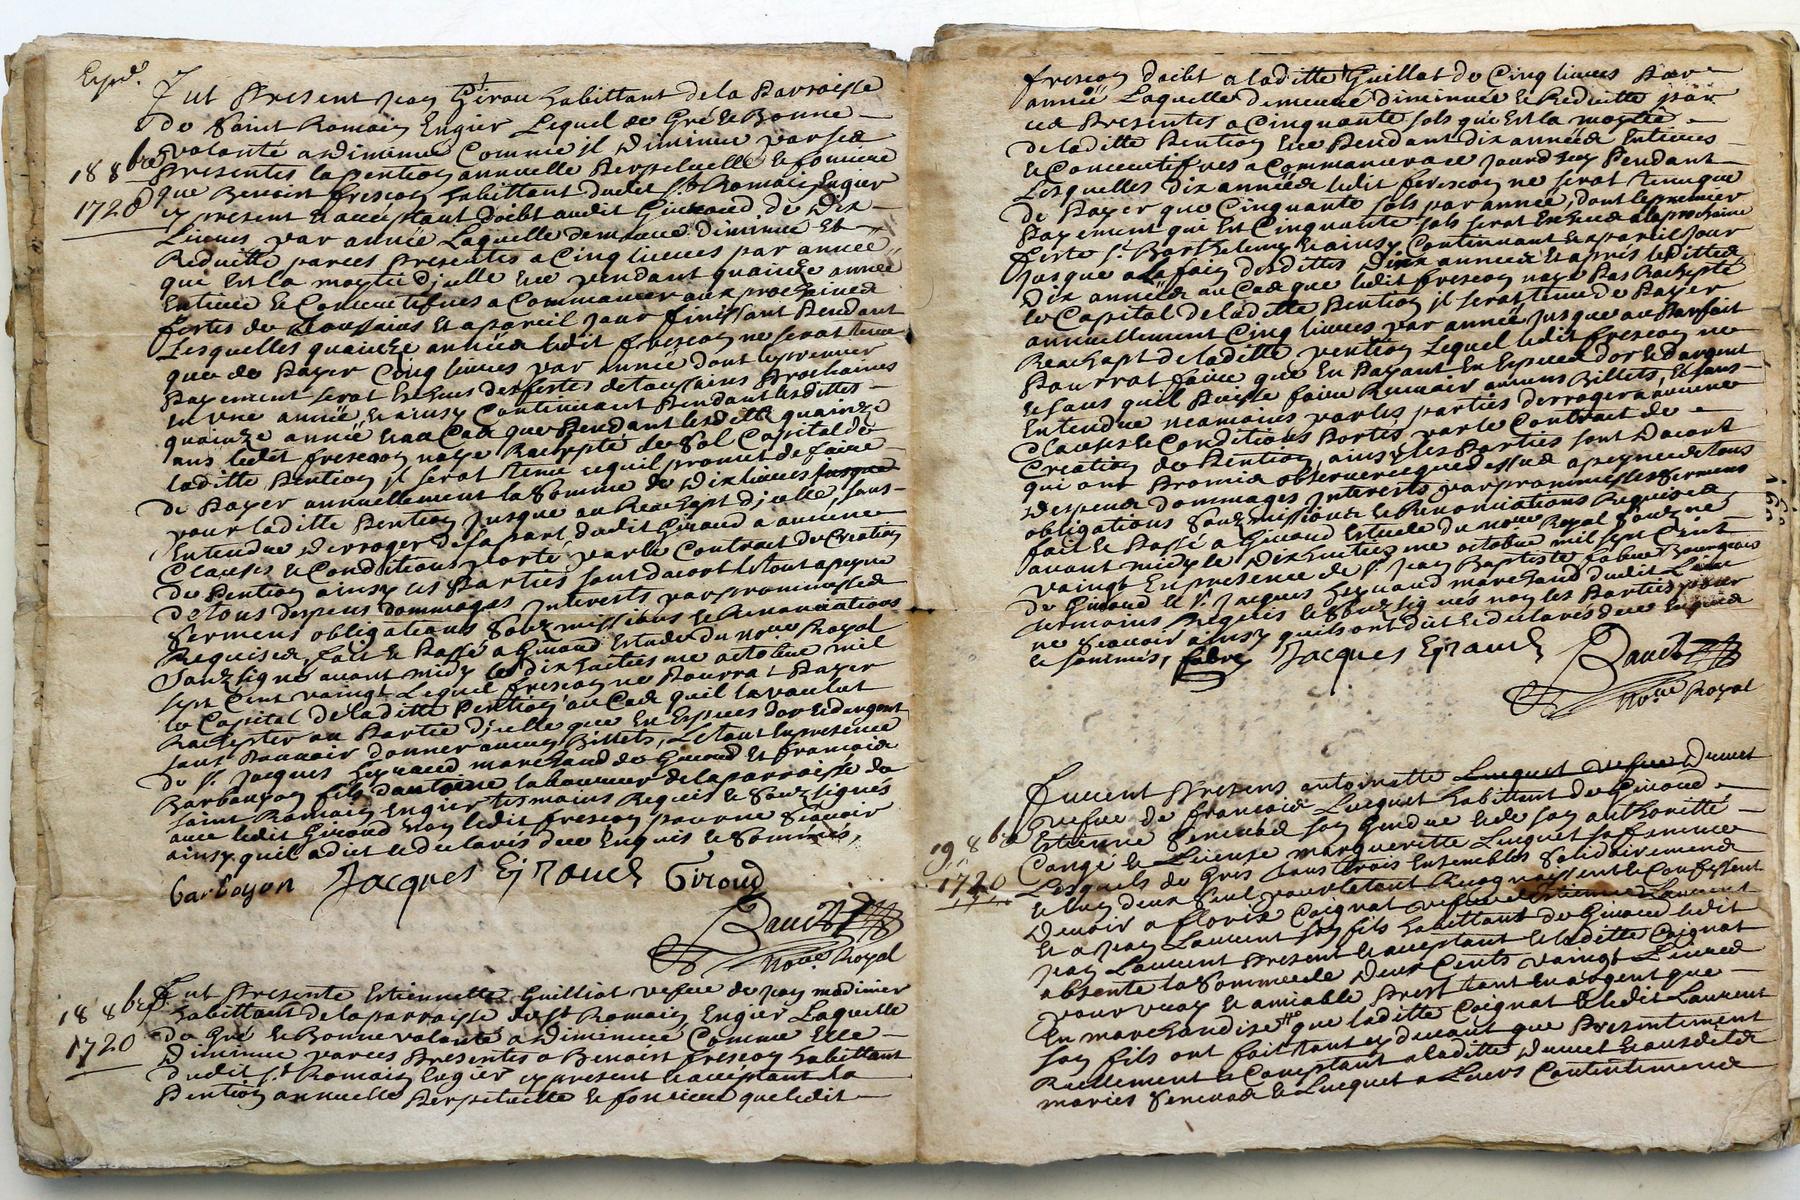 Exped.
Fut Present Jean Girou habittant de la Parroisse
de Saint Romain Engier Lequel de Gré & Bonne
volonté a diminué Comme jl diminue par sed
18 8bre
1720
presentes la pention annuelle Perpetuelle & fonciere
que Benoist frescon habittant dudit St Romain Engier
cy present & acceptant doibt audit Giraud de Dix
Livres par année Laquelle demeure diminué Et
Reduitte parces Presentes a Cinq livres par année
que est la moytié d'jcelle Ere pendant quainze année
Entiere & Consecutifves a Commancer aux prochained
festes de Toussains Et apareil jour finissant Pendant
Lesquelles quainze annéed ledit frescon ne serat tenu
que de Payer Cinq livres par année dont le premier
Payement serat Escheus des festes de Toussains Prochaines
En une année, & ainsy Continuant Pendant lesdittes
quainze année & au Cad que Pendant lesditte quainze
ans ledit frescon naye Rachypté le Sol Capital de
laditte Pention jl serat tenu cequil promet de faire
de Payer annuellement la Somme de Dix livres jusque
pour laditte Pention jusque au Reachept d'jcelle, sans
Entendue derroger de sa part dudit Giraud a aucune
Clauses & Conditions porté par le Contract de Création
de Pention ainsy les Parties sont dacort & tout apeyne
de tous despens dommages jnterests par prommissed
Sermens obligations Souzmissions & Renonciations
Requised, fait & Passé a Givord Estude du Nore Royal
Souzsigné avant midy le dixhuitiesme octobre mil
sept Cent vaingt Lequel frescon ne Pourrat Payer
le Capital de laditte Pention au Cad quil la voulut
Rachepter ou Partie d'jcelle que En Espices dor & dargent
sans Pouvoir donner aucun Billets, Le tout En presence
de Sr Jacques Eyraud marchand de Givord Et francoid
Barbançon fils dantoine laboureur de la parroisse de
Saint Romain Engier tesmoins Requis & Souzsignés
avec ledit Giroud non ledit frescon pour ne Scavoir
ainsy quil a dict & declaré de ce Enquis & Sommés,
barboyon Jacques Eyraud Giroud
Nore Royal
18 8bre
1720
Fut Presente Estiennette Guilliot vefve de jean modinier
habittant de la parroisse de St Romain Engier Laquelle
de Gré & Bonne volonté a Diminué Comme Elle
Diminue parces Presentes a Benoist frescon habittant
dudit St Romain Engier cy present & acceptant la
Pention annuelle Perpetuelle & fonciere que ledit
frescon doibt a laditte Guillot de Cinq livres Par
année Laquelle demeure diminuee & Reduitte par
ced Presentes a Cinquante sols que est la moytié
de laditte Pention Ere Pendant dix annéed Entieres
& Consecutifves a Commancer a ce jourd'huy Pendant
Lesquelles dix annéed ledit frescon ne serat tenu que
de Payer que Cinquante sols par année, dont le premier
Payement que Est Cinquante sols serat Escheud a la prochaine
feste St Barthelemy & ainsy Continuant & apareil jour
jusque a la fain desdittes Dix annéed Et aprés lesdittes
dix annéed au Cad que ledit frescon naye Pas Rachepté
le Capital de laditte Pention jl serat tenu de Payer
annuellement Cinq livres par année jusque au Parfait
Reachapt de laditte pention Lequel ledit frescon ne
Pourrat faire que En Payant En Espices dor & dargent
& sans quil Puisse faire Recevoir aucuns Billets, & sans
Entendue neamoins par les parties derroger a aucune
Clauses & Conditions Portés par le Contract de
Création de Pention, ainsy les Parties sont Dacort
qui ont Promis observer ce que dessus apeyne de tous
despens dommages jnterests par prommisses Sermens
obligations Souzmissions & Renonciations Requised,
fait & Passé a Givord Estude du Nore Royal Souzsigné
avant midy le Dixhuitiesme octobre mil sept Cent
vaingt En presence de Sr Jean Baptiste fabre Bourgeois
de Givord & Sr Jacques Eyraud marchand dudit Lieu
tesmoins Requis & Souzsignés non les Parties pour
ne Scavoir ainsy quils ont dict & declarés de ce Enquis
& sommés, fabre Jacques Eyraud
Nore Royal
19 8bre
1720
Furent Presens antoinette Lucquet vefve Dumet
vefve de francoid Lucquet habittant de Givord
Estienne Semenad son Gendre & de son authorité
Congé & License margueritte Lucquet sa famme
Lesquels de Gres tous trois Ensembles Solidairemend
& lun deux seul pour le tout Recognoissent & Confessent
Devoir a floris Coignat vefve d'Estienne Laurent
Et a jean Laurent son fils habittant de Givord ledit
jean Laurent Present & acceptant & laditte Coignat
absente la Somme de Deux Cents vaingt Livred
pour vray & amiable Prest tant En argent que
En marchandise que laditte Coignat & ledit Laurent
son fils ont fait tant cy devant que Presentement
Reellement & Comptant a laditte Dumet & ausditd
maries Semenad & Lucquet a Leurs Contentemend